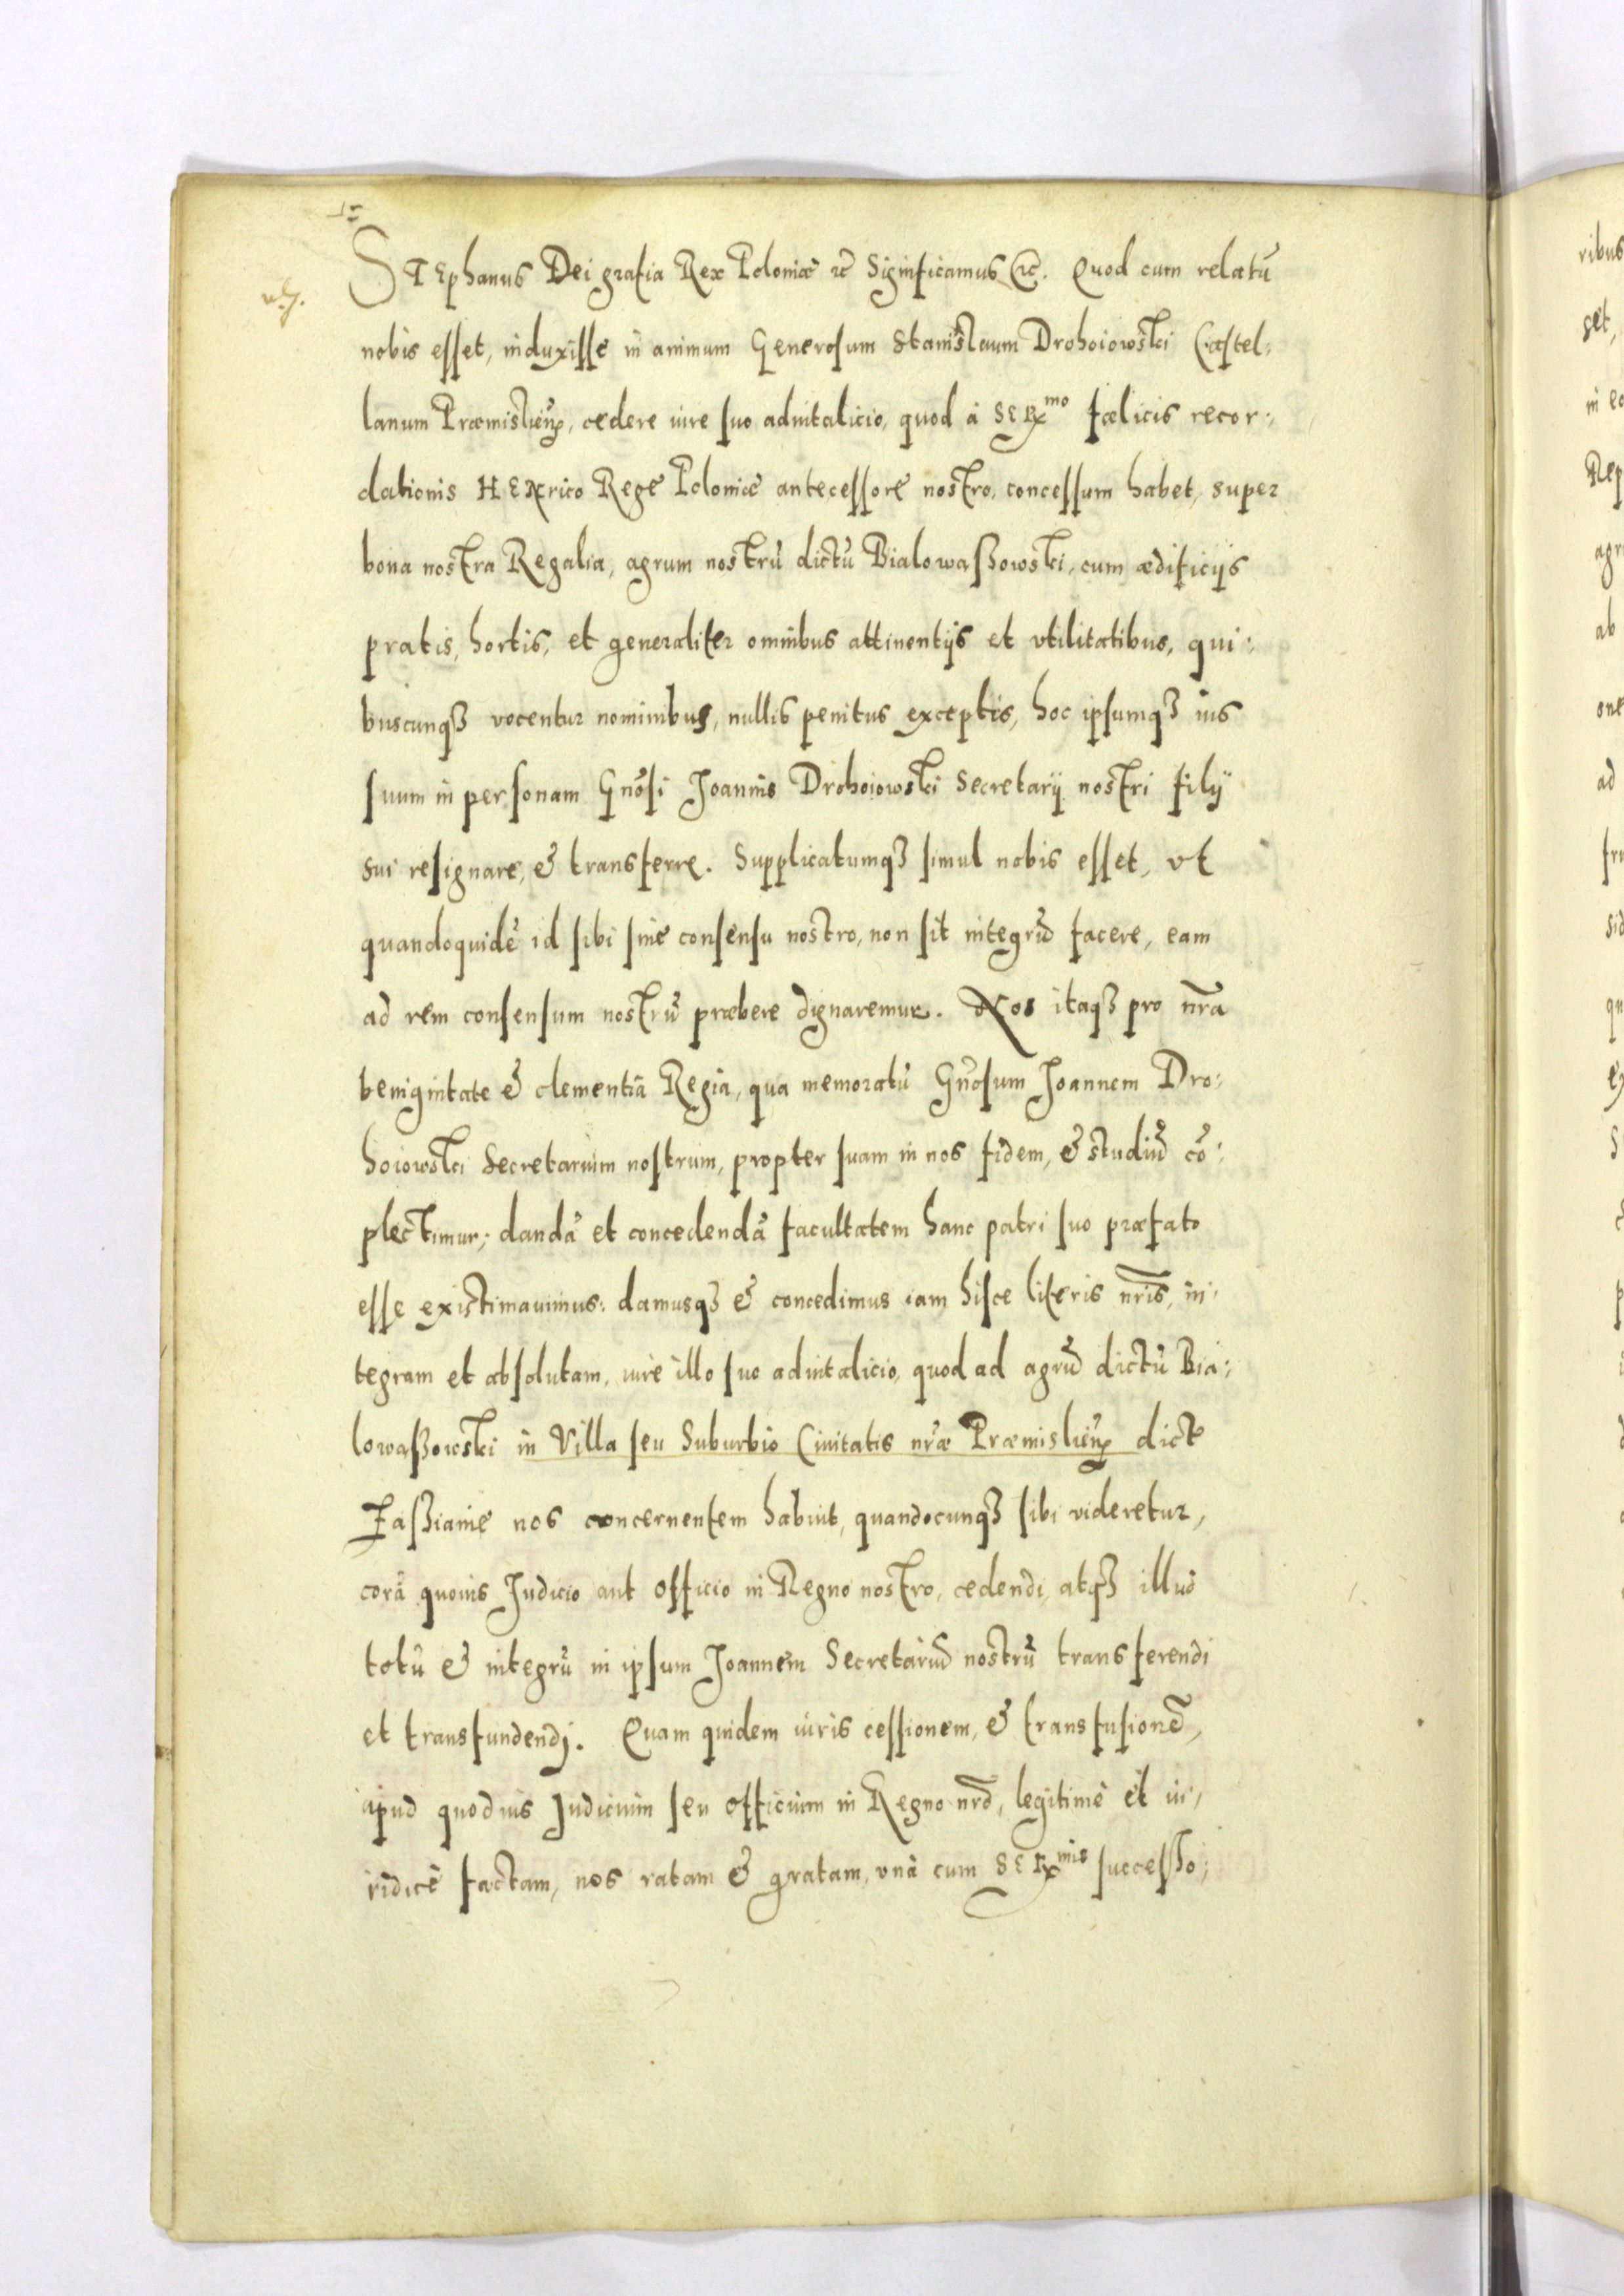 STEphanus Dei gratia Rex Poloniæ etc̄ Significamus etc̄. Quod cum relatū
nobis esset, induxisse in animum Generosum Stanislaum Drohoiowski Castel:
lanum Præmislieñ, cedere iure suo aduitalicio, quod à SERmo fælicis recor:
dationis HENrico Rege Poloniæ antecessore nostro, concessum habet, super
bona nostra Regalia, agrum nostrū dictū Bialowaßowski, cum ædificijs
pratis, hortis, et generaliter omnibus attinentijs et vtilitatibus, qui:
buscunqȝ vocentur nominibus, nullis penitus exceptis, hoc ipsumqȝ ius
suum in personam Gnōsi Joannis Drohoiowski Secretarij nostri filij
sui resignare, & transferre. Supplicatumqȝ simul nobis esset, vt
quandoquidē id sibi sine consensu nostro, non sit integrū facere, eam
ad rem consensum nostrū præbere dignaremur. Nos itaqȝ pro nr̄a
benignitate & clementia Regia, qua memoratū Gn̄osum Joannem Dro:
hoiowski Secretarium nostrum, propter suam in nos fidem, & studiū cō:
plectimur; dandā et concedendā facultatem hanc patri suo præfato
esse existimauimus: damusqȝ & concedimus iam hisce literis nr̄is, in:
tegram et absolutam, iure illo suo aduitalicio, quod ad agrū dictū Bia:
lowaßowski in Villa seu Suburbio Ciuitatis nr̄æ Præmislieñ dict
Zaßianie nos concernentem habuit, quandocunqȝ sibi videretur,
corā quouis Judicio aut Officio in Regno nostro, cedendi, atqȝ illud
totū & integrū in ipsum Joannem Secretariū nostrū transferendi
et transfundendj. Quam quidem iuris cessionem, & transfusionē,
apud quoduis Judicium seu Officium in Regno nr̄o, legitimè et iu:
ridicè factam, nos ratam & gratam, vnà cum SERmis successo: